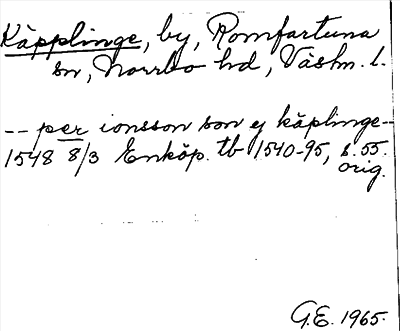 Käpplinge, by, Romfartuna
sn, Norrbo hd, Västm. l.
-- per ionsson son ej käplinge--
1548 8/3 Enköp. tb 1540-95, s. 55.
orig.
G.E. 1965.